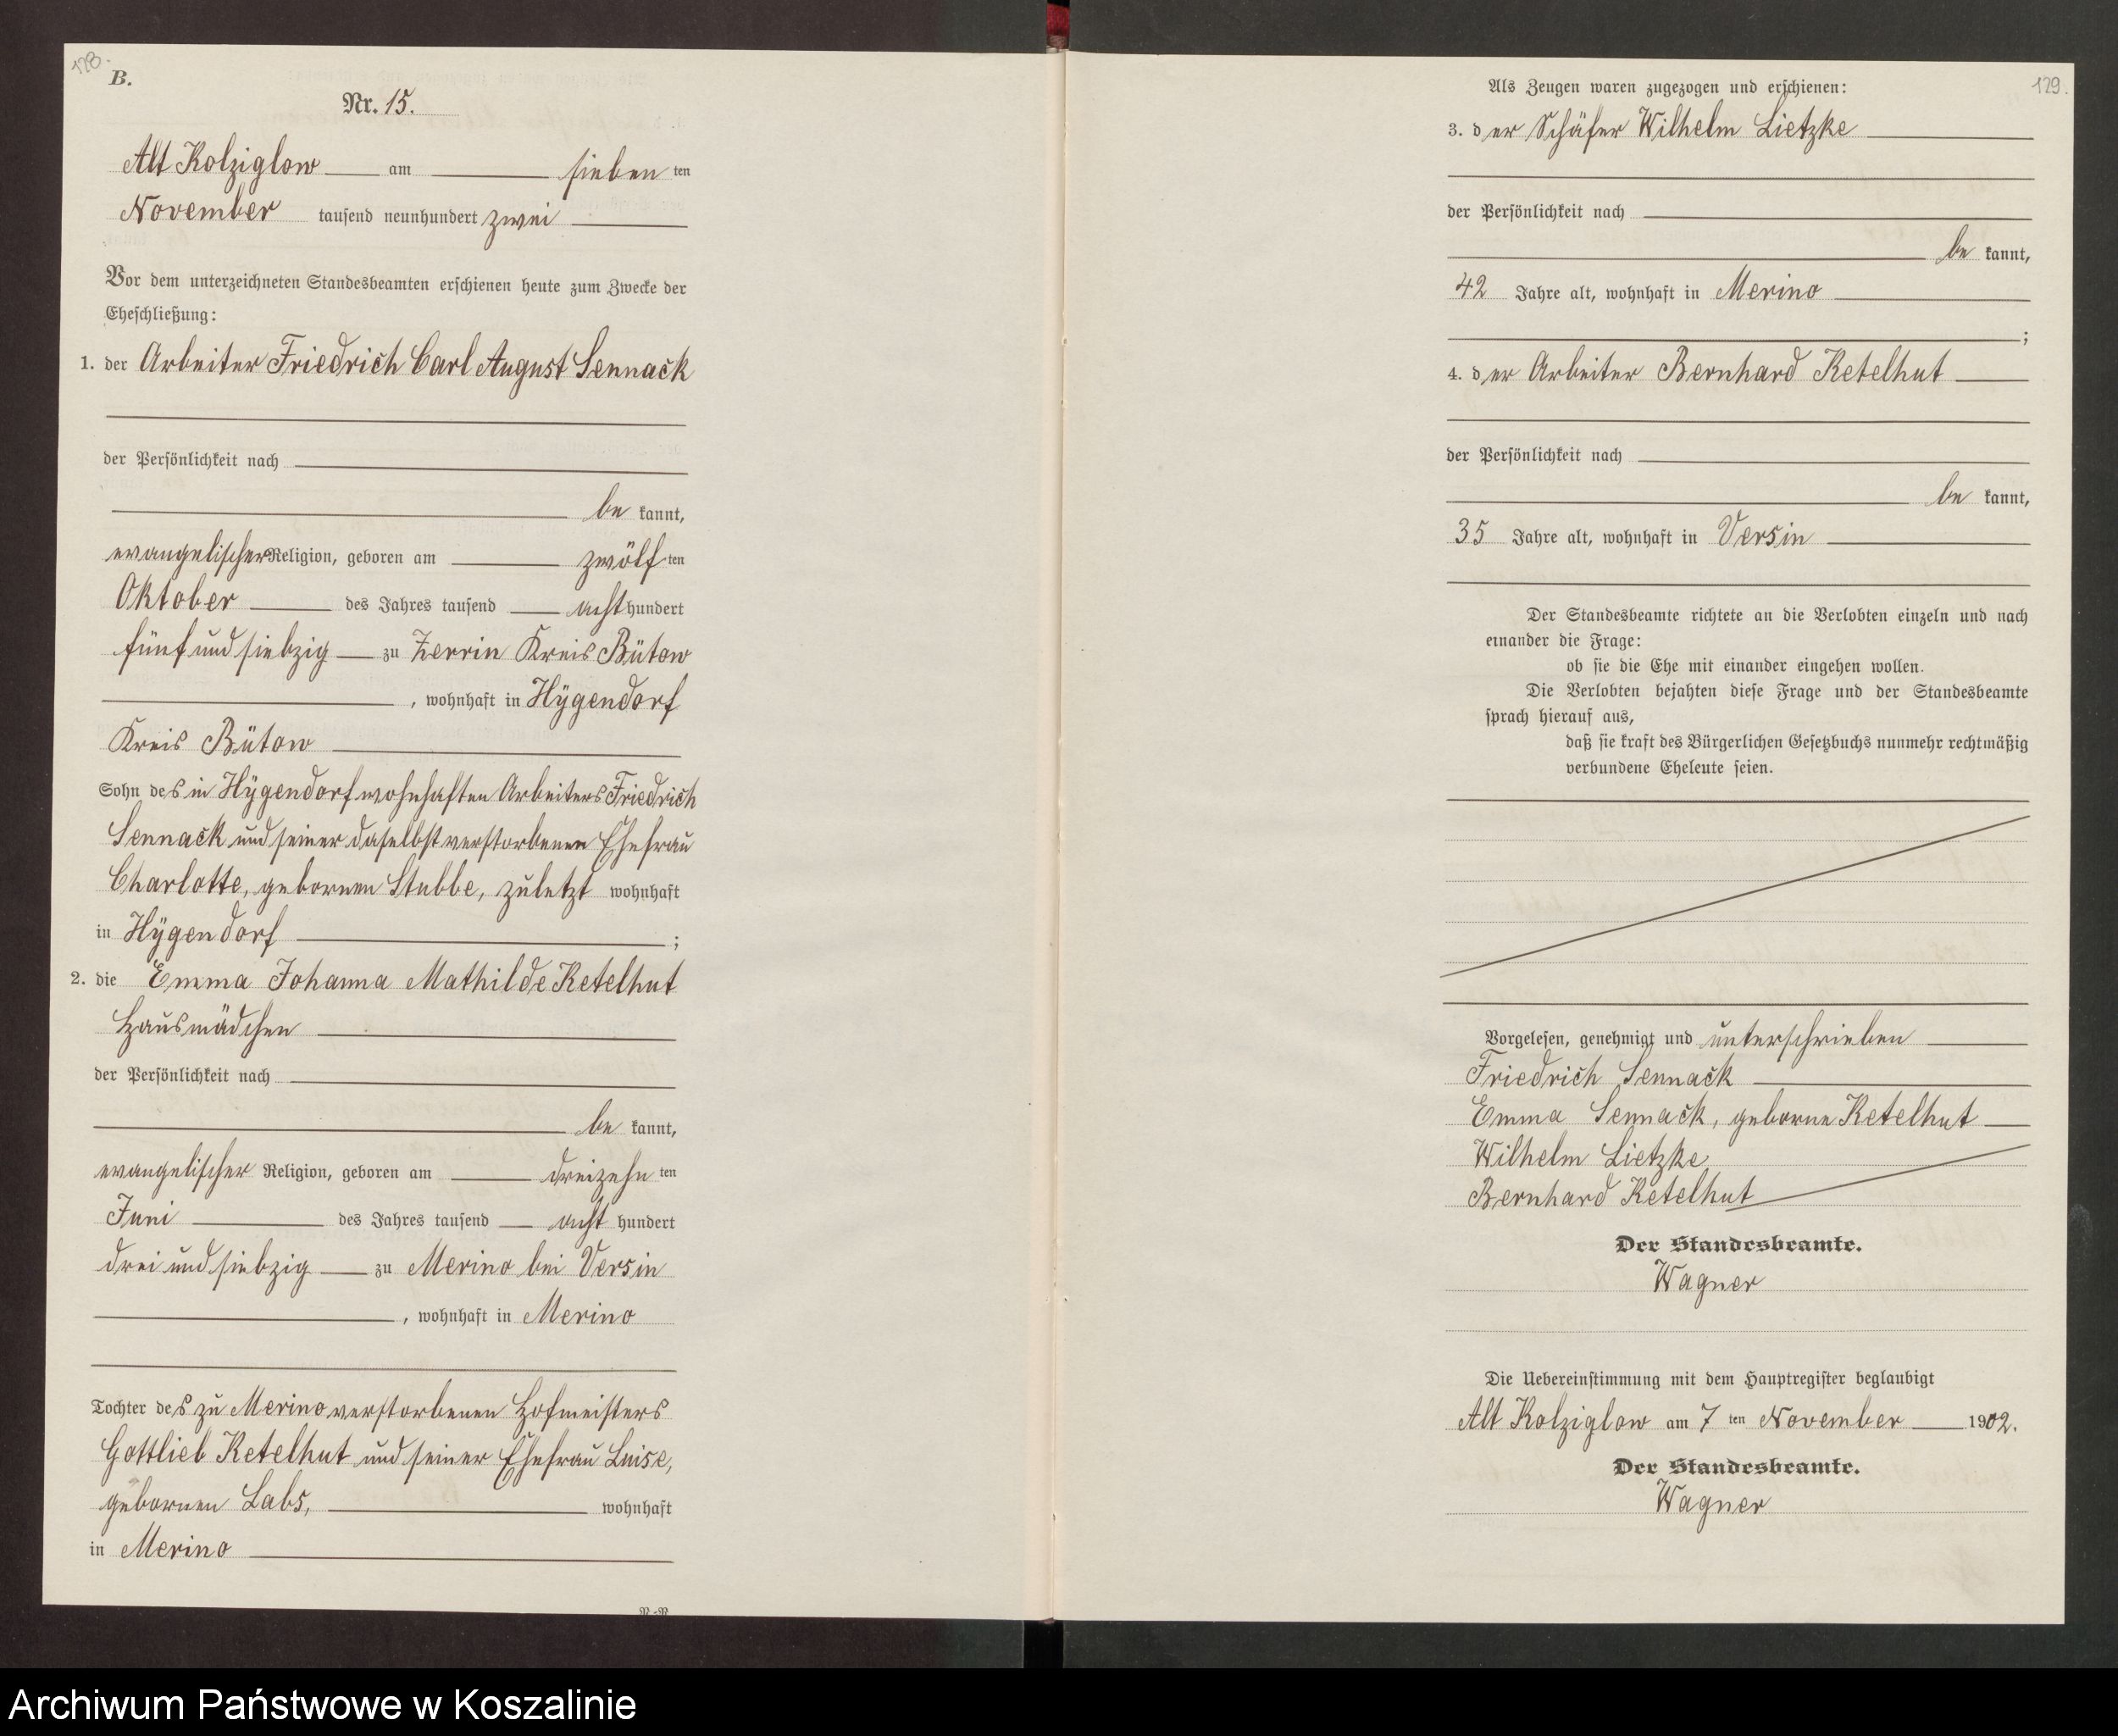 128.
B.
Nr. 15.
Alt Kolziglow am sieben ten
November tausend neunhundert zwei
Vor dem unterzeichneten Standesbeamten erschienen heute zum Zwecke der
Eheschließung:
1. der Arbeiter Friedrich Carl August Sennack
der Persönlichkeit nach
be kannt,
evangelischer Religion, geboren am zwölf ten
Oktober des Jahres tausend acht hundert
fünf und siebzig zu Zerrin Kreis Bütow
, wohnhaft in Hygendorf
Kreis Bütow
Sohn des in Hygendorf wohnhaften Arbeiters Friedrich
Sennack und seiner daselbst verstorbenen Ehefrau
Charlotte, gebornen Stubbe, zuletzt wohnhaft
in Hygendorf ;
2. die Emma Johanna Mathilde Ketelhut
Hausmädchen
der Persönlichkeit nach
be kannt,
evangelischer Religion, geboren am dreizehn ten
Juni des Jahres tausend acht hundert
drei und siebzig zu Merino bei Versin
, wohnhaft in Merino
Tochter des zu Merino verstorbenen Hofmeisters
Gottlieb Ketelhut und seiner Ehefrau Luise,
gebornen Labs, wohnhaft
in Merino
129.
Als Zeugen waren zugezogen und erschienen:
3. der Schäfer Wilhelm Lietzke
der Persönlichkeit nach
be kannt,
42 Jahre alt, wohnhaft in Merino
;
4. der Arbeiter Bernhard Ketelhut
der Persönlichkeit nach
be kannt,
35 Jahre alt, wohnhaft in Versin
Der Standesbeamte richtete an die Verlobten einzeln und nach
einander die Frage:
ob sie die Ehe mit einander eingehen wollen.
Die Verlobten bejahten diese Frage und der Standesbeamte
sprach hierauf aus,
daß sie kraft des Bürgerlichen Gesetzbuchs nunmehr rechtmäßig
verbundene Eheleute seien.
Vorgelesen, genehmigt und unterschrieben
Friedrich Sennack
Emma Sennack, geborne Ketelhut
Wilhelm Lietzke
Bernhard Ketelhut
Der Standesbeamte.
Wagner
Die Uebereinstimmung mit dem Hauptregister beglaubigt
Alt Kolziglow am 7 ten November 1902.
Der Standesbeamte.
Wagner
Archiwum Państwowe w Koszalinie